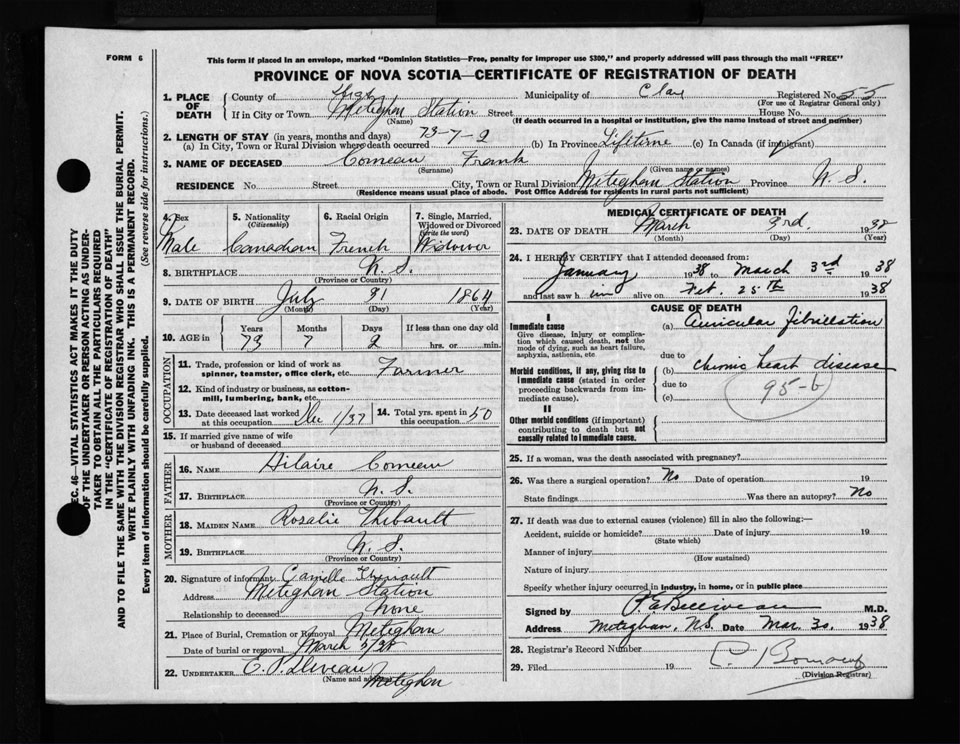 FORM 6
This form if placed in an envelope, marked "Dominion Statistics—Free, penalty for improper use $300," and properly addressed will pass through the mail "FREE"
PROVINCE OF NOVA SCOTIA—CERTIFICATE OF REGISTRATION OF DEATH
1. PLACE OF DEATH { County of Municipality of Clare Registered No. 55
(For use of Registrar General only)
If in City or Town Meteghan Station Street House No.
(Name) (If death occurred in a hospital or institution, give the name instead of street and number)
2. LENGTH OF STAY (in years, months and days) 73-7-2
(a) In City, Town or Rural Division where death occurred (b) In Province Lifetime (c) In Canada (if immigrant)
3. NAME OF DECEASED Comeau Frank
(Surname) (Given name or names)
RESIDENCE No. Street City, Town or Rural Division Meteghan Station Province N. S.
(Residence means usual place of abode. Post Office Address for residents in rural parts not sufficient)
4. Sex 5. Nationality 6. Racial Origin 7. Single, Married, Widowed or Divorced
(Citizenship) (write the word)
Male Canadian French Widower
8. BIRTHPLACE N. S.
(Province or Country)
9. DATE OF BIRTH July 31 1864
(Month) (Day) (Year)
10. AGE in Years Months Days If less than one day old
73 7 2 hrs. or min.
OCCUPATION
11. Trade, profession or kind of work as spinner, teamster, office clerk, etc. Farmer
12. Kind of industry or business, as cotton-mill, lumbering, bank, etc.
13. Date deceased last worked at this occupation Dec 1/37 14. Total yrs. spent in this occupation 50
15. If married give name of wife or husband of deceased
FATHER
16. NAME Hilaire Comeau
17. BIRTHPLACE N. S.
(Province or Country)
MOTHER
18. MAIDEN NAME Rosalie Thibault
19. BIRTHPLACE N. S.
(Province or Country)
20. Signature of informant Camille
Address Meteghan Station
Relationship to deceased None
21. Place of Burial, Cremation or Removal Meteghan
Date of burial or removal March 5/38
22. UNDERTAKER E. P. Deveau
(Name and address) Meteghan
MEDICAL CERTIFICATE OF DEATH
23. DATE OF DEATH March 3rd. 1938
(Month) (Day) (Year)
24. I HEREBY CERTIFY that I attended deceased from:
January 1938 to March 3rd 1938
and last saw him alive on Feb. 25th 1938
CAUSE OF DEATH
I
Immediate cause (a) Auricular fibrillation
Give disease, injury or complication which caused death, not the mode of dying, such as heart failure, asphyxia, asthenia, etc
due to
Morbid conditions, if any, giving rise to immediate cause (stated in order proceeding backwards from immediate cause). (b) chronic heart disease
due to 95-b
(c)
II
Other morbid conditions (if important) contributing to death but not causally related to immediate cause.
25. If a woman, was the death associated with pregnancy?
26. Was there a surgical operation? No Date of operation 19
State findings Was there an autopsy? No
27. If death was due to external causes (violence) fill in also the following:—
Accident, suicide or homicide? Date of injury 19
(State which)
Manner of injury
(How sustained)
Nature of injury
Specify whether injury occurred in industry, in home, or in public place
Signed by M.D.
Address Meteghan, N.S. Date Mar. 30. 1938
28. Registrar's Record Number
29. Filed 19
(Division Registrar)
SEC. 46—VITAL STATISTICS ACT MAKES IT THE DUTY
OF THE UNDERTAKER OR PERSON ACTING AS UNDER-
TAKER TO OBTAIN ALL THE PARTICULARS REQUIRED
IN THE "CERTIFICATE OF REGISTRATION OF DEATH"
AND TO FILE THE SAME WITH THE DIVISION REGISTRAR WHO SHALL ISSUE THE BURIAL PERMIT.
WRITE PLAINLY WITH UNFADING INK. THIS IS A PERMANENT RECORD.
Every item of information should be carefully supplied. (See reverse side for instructions.)